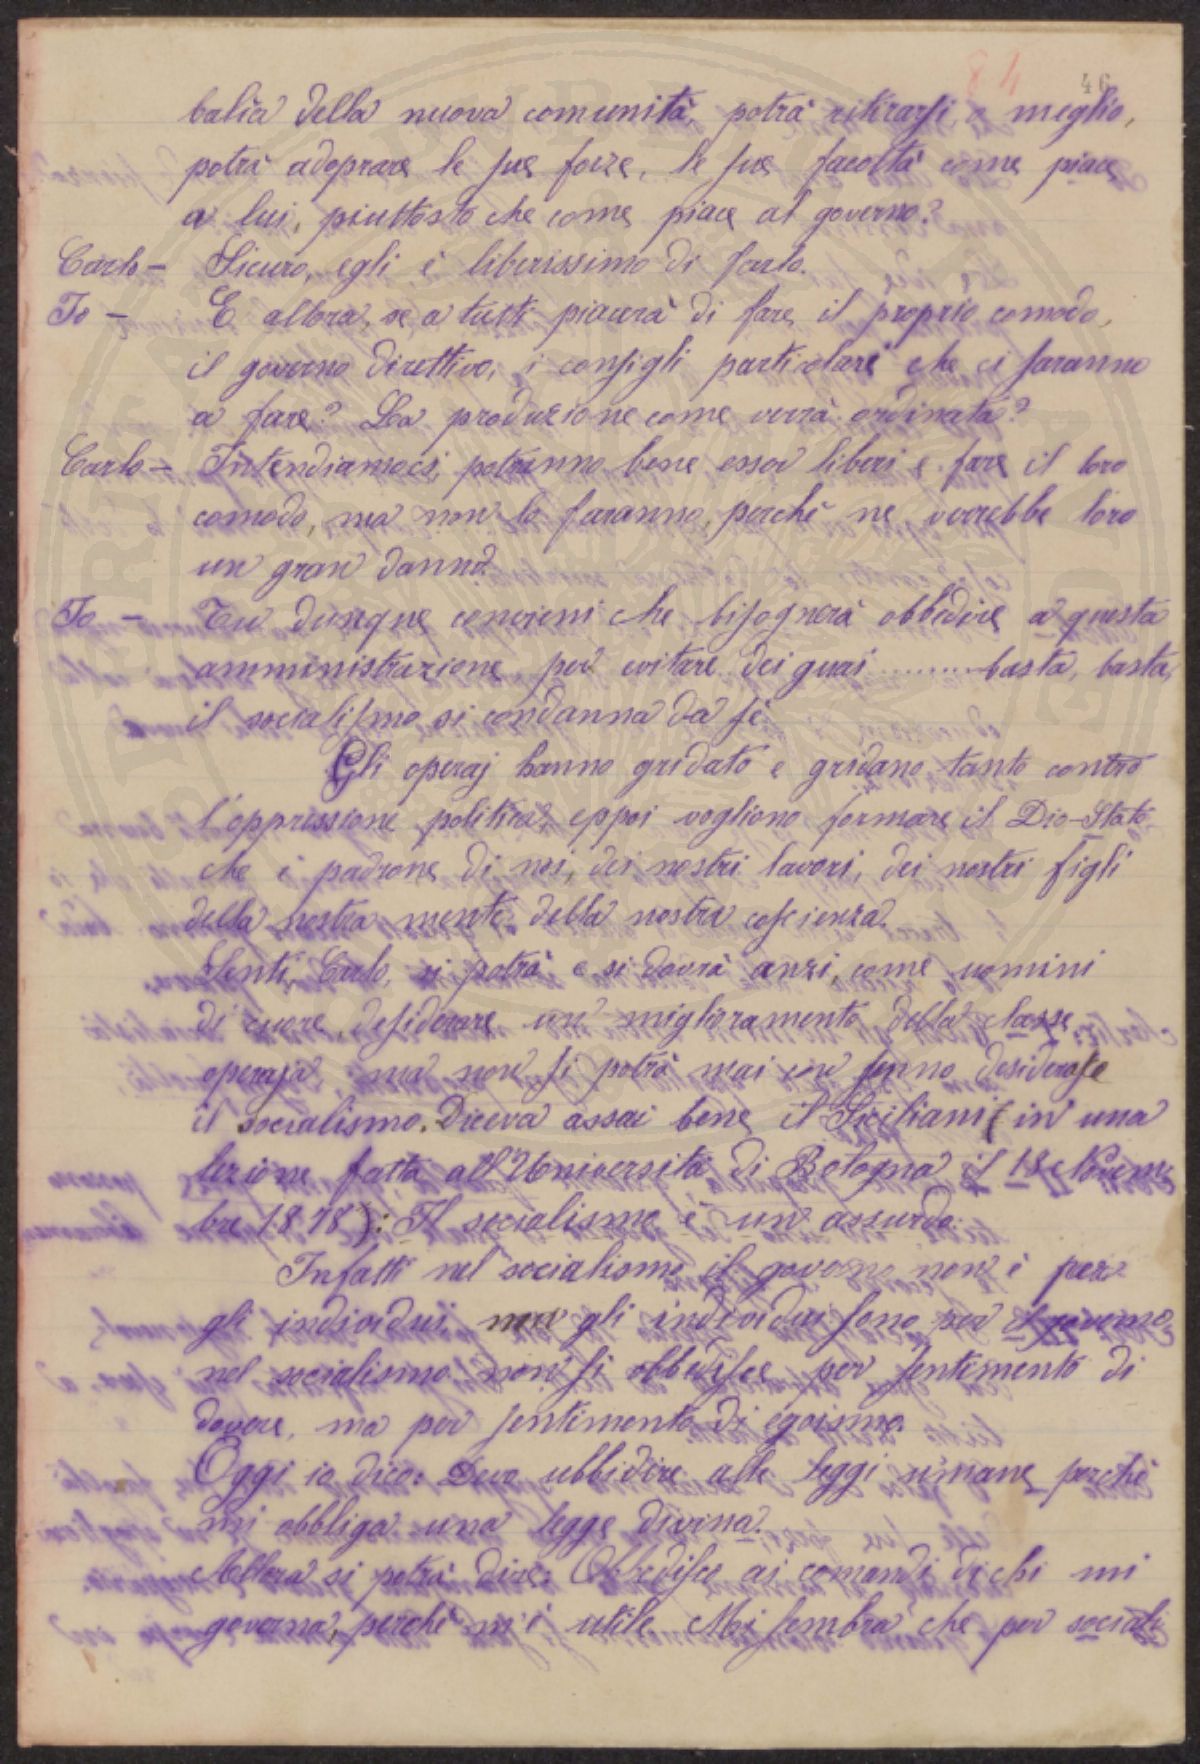 84 46
balìa della nuova comunità, potrà ritirarsi, o meglio,
potrà adoprare le sue forze, le sue facoltà come piace
a lui, piuttosto che come piace al governo?
Carlo – Sicuro, egli è liberissimo di farlo.
Io – E allora, se a tutti piacerà di fare il proprio comodo,
il governo direttivo, i consigli particolari che ci saranno
a fare? La produzione come verrà ordinata?
Carlo – Intendiamoci, potranno bene esser liberi e fare il loro
comodo, ma non lo faranno, perchè ne verrebbe loro
un gran danno.
Io – Tu dunque convieni che bisognerà obbedire a questa
amministrazione, per evitare dei guai ......... basta, basta,
il socialismo si condanna da sè.
Gli operaj hanno gridato e gridano tanto contro
l'oppressione politica, eppoi vogliono formare il Dio-Stato
che è padrone di noi, dei nostri lavori, dei nostri figli
della nostra mente, della nostra coscienza.
Senti, Carlo, si potrà e si dovrà anzi, come uomini
di cuore, desiderare un miglioramento della classe
operaja, ma non si potrà mai con senno desiderare
il socialismo. Diceva assai bene il Siciliani (in una
lezione fatta all'Università di Bologna il 18 Novem
bre 1878): Il socialismo è un assurdo.
Infatti nel socialismo il governo non è per
gli individui, ma gli individui sono per il governo,
nel socialismo non si obbedisce per sentimento di
dovere, ma per sentimento di egoismo.
Oggi io dico: Devo ubbidire alle leggi umane perchè
mi obbliga una legge divina.
Allora si potrà dire: Obbedisco ai comandi di chi mi
governa, perchè m'è utile. Mi sembra che per sociali